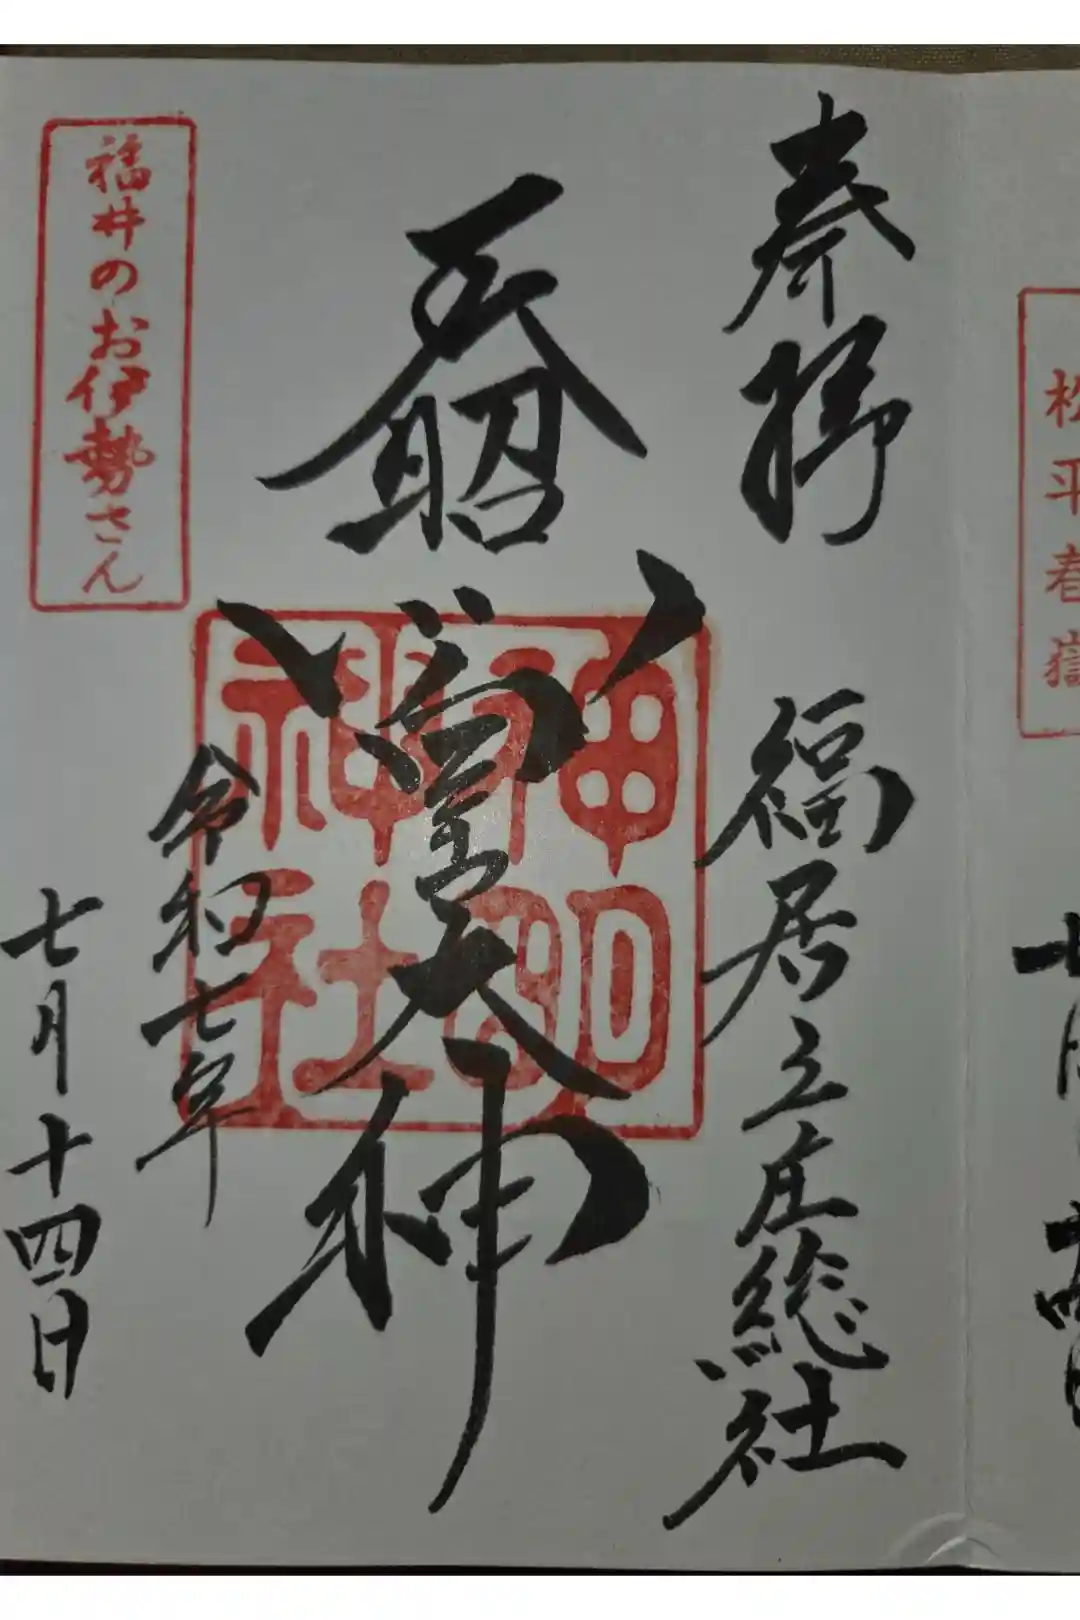 松平春嶽
奉拝　福居之庄総社
天照皇大神
神明神社
令和七年
七月十四日
福井のお伊勢さん